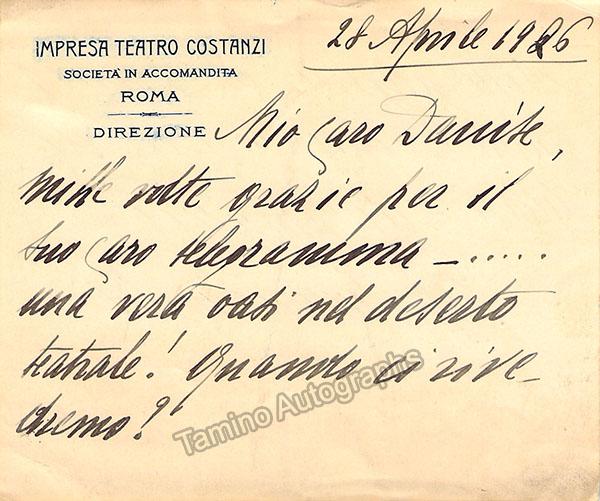 28 Aprile 1926
IMPRESA TEATRO COSTANZI
SOCIETA' IN ACCOMANDITA
ROMA
DIREZIONE
Mio caro Danise,
mille volte grazie per il
tuo caro telegramma – .....
una vera oasi nel deserto
teatrale! Quando ci rive-
dremo?
Tamino Autographs